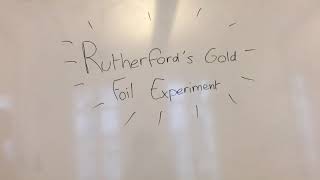 Rutherford's Gold
Foil Experiment